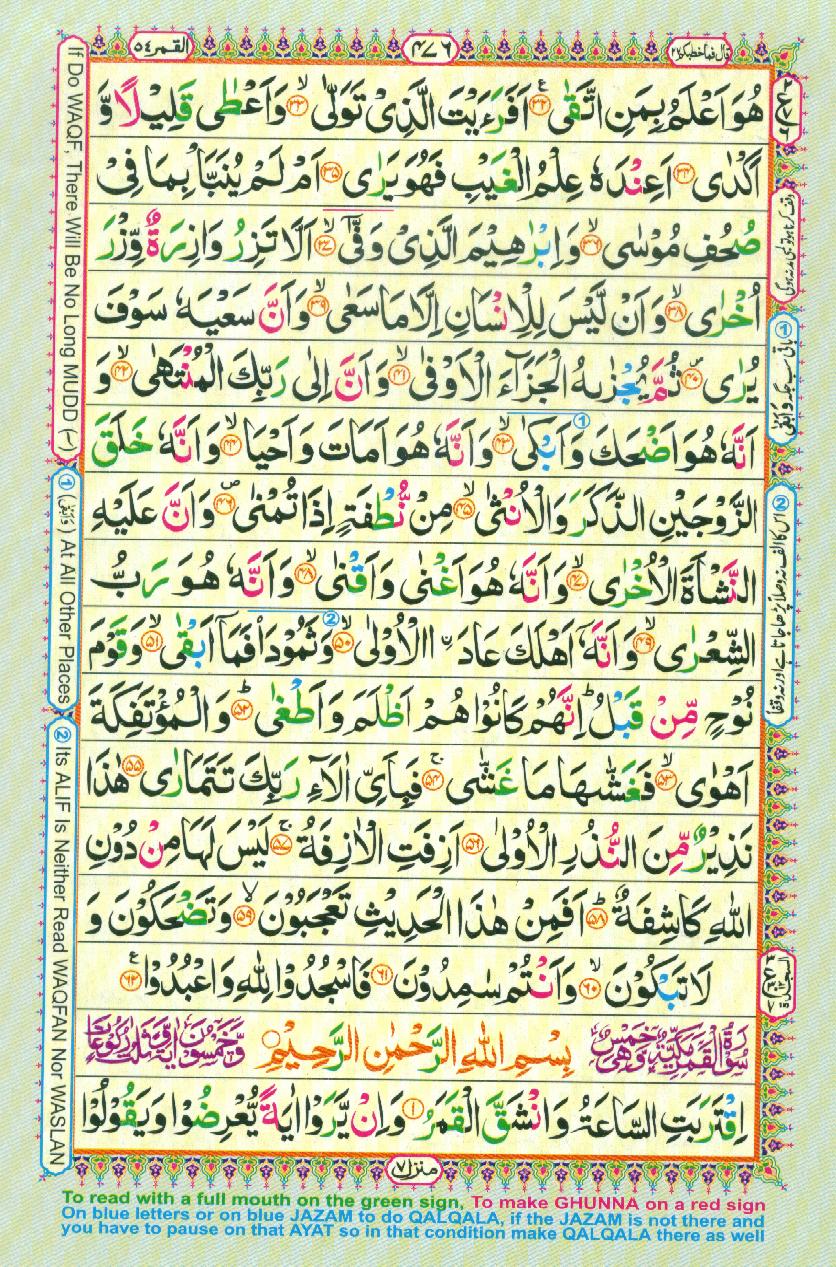 قال فما خطبکم ٢٧
٤٧٦
القمر ٥٤
هُوَ اَعْلَمُ بِمَنِ اتَّقٰى ﴿۳۲﴾ اَفَرَءَيْتَ الَّذِىْ تَوَلّٰى ﴿۳۳﴾ وَاَعْطٰى قَلِيْلًا وَّ
اَكْدٰى ﴿۳۴﴾ اَعِنْدَهٗ عِلْمُ الْغَيْبِ فَهُوَ يَرٰى ﴿۳۵﴾ اَمْ لَمْ يُنَبَّاْ بِمَا فِىْ
صُحُفِ مُوْسٰى ﴿۳۶﴾ وَاِبْرٰهِيْمَ الَّذِىْ وَفّٰٓى ﴿۳۷﴾ اَلَّا تَزِرُ وَازِرَةٌ وِّزْرَ
اُخْرٰى ﴿۳۸﴾ وَاَنْ لَّيْسَ لِلْاِنْسَانِ اِلَّا مَا سَعٰى ﴿۳۹﴾ وَاَنَّ سَعْيَهٗ سَوْفَ
يُرٰى ﴿۴۰﴾ ثُمَّ يُجْزٰىهُ الْجَزَآءَ الْاَوْفٰى ﴿۴۱﴾ وَاَنَّ اِلٰى رَبِّكَ الْمُنْتَهٰى ﴿۴۲﴾ وَ
اَنَّهٗ هُوَ اَضْحَكَ وَاَبْكٰى ﴿۴۳﴾ وَاَنَّهٗ هُوَ اَمَاتَ وَاَحْيَا ﴿۴۴﴾ وَاَنَّهٗ خَلَقَ
الزَّوْجَيْنِ الذَّكَرَ وَالْاُنْثٰى ﴿۴۵﴾ مِنْ نُّطْفَةٍ اِذَا تُمْنٰى ﴿۴۶﴾ وَاَنَّ عَلَيْهِ
النَّشْاَةَ الْاُخْرٰى ﴿۴۷﴾ وَاَنَّهٗ هُوَ اَغْنٰى وَاَقْنٰى ﴿۴۸﴾ وَاَنَّهٗ هُوَ رَبُّ
الشِّعْرٰى ﴿۴۹﴾ وَاَنَّهٗٓ اَهْلَكَ عَادَاۨ الْاُوْلٰى ﴿۵۰﴾ وَثَمُوْدَا۟ فَمَآ اَبْقٰى ﴿۵۱﴾ وَقَوْمَ
نُوْحٍ مِّنْ قَبْلُ ؕ اِنَّهُمْ كَانُوْا هُمْ اَظْلَمَ وَاَطْغٰى ﴿۵۲﴾ وَالْمُؤْتَفِكَةَ
اَهْوٰى ﴿۵۳﴾ فَغَشّٰىهَا مَا غَشّٰى ﴿۵۴﴾ فَبِاَىِّ اٰلَآءِ رَبِّكَ تَتَمَارٰى ﴿۵۵﴾ هٰذَا
نَذِيْرٌ مِّنَ النُّذُرِ الْاُوْلٰى ﴿۵۶﴾ اَزِفَتِ الْاٰزِفَةُ ﴿۵۷﴾ لَيْسَ لَهَا مِنْ دُوْنِ
اللّٰهِ كَاشِفَةٌ ﴿۵۸﴾ اَفَمِنْ هٰذَا الْحَدِيْثِ تَعْجَبُوْنَ ﴿۵۹﴾ وَتَضْحَكُوْنَ وَ
لَا تَبْكُوْنَ ﴿۶۰﴾ وَاَنْتُمْ سٰمِدُوْنَ ﴿۶۱﴾ فَاسْجُدُوْا لِلّٰهِ وَاعْبُدُوْا ﴿۶۲﴾
سُوْرَةُ الْقَمَرِ مَكِّيَّةٌ وَّهِىَ خَمْسٌ
بِسْمِ اللّٰهِ الرَّحْمٰنِ الرَّحِيْمِ
وَّخَمْسُوْنَ اٰيَةً وَّثَلٰثُ رُكُوْعَاتٍ
اِقْتَرَبَتِ السَّاعَةُ وَانْشَقَّ الْقَمَرُ ﴿۱﴾ وَاِنْ يَّرَوْا اٰيَةً يُّعْرِضُوْا وَيَقُوْلُوْا
منزل ٧
If Do WAQF, There Will Be No Long MUDD (~)
① (وَاَبْقٰى) At All Other Places
② Its ALIF Is Neither Read WAQFAN Nor WASLAN
To read with a full mouth on the green sign, To make GHUNNA on a red sign
On blue letters or on blue JAZAM to do QALQALA, if the JAZAM is not there and
you have to pause on that AYAT so in that condition make QALQALA there as well